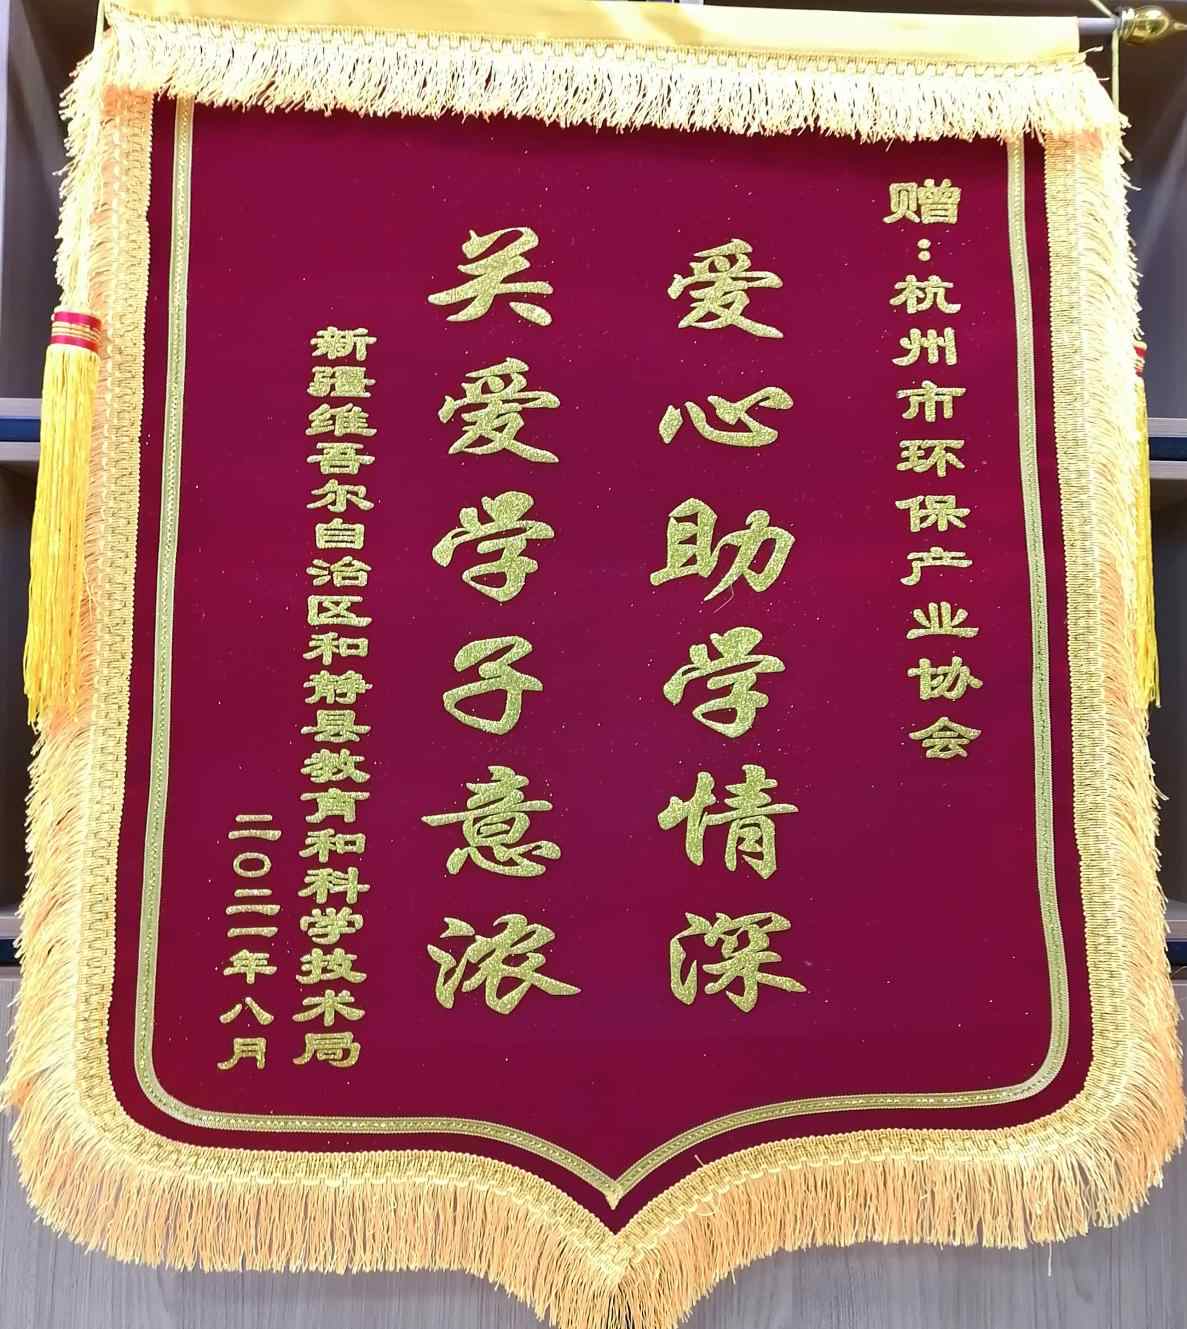 赠：杭州市环保产业协会
爱心助学情深
关爱学子意浓
新疆维吾尔自治区和静县教育和科学技术局
二〇二一年八月